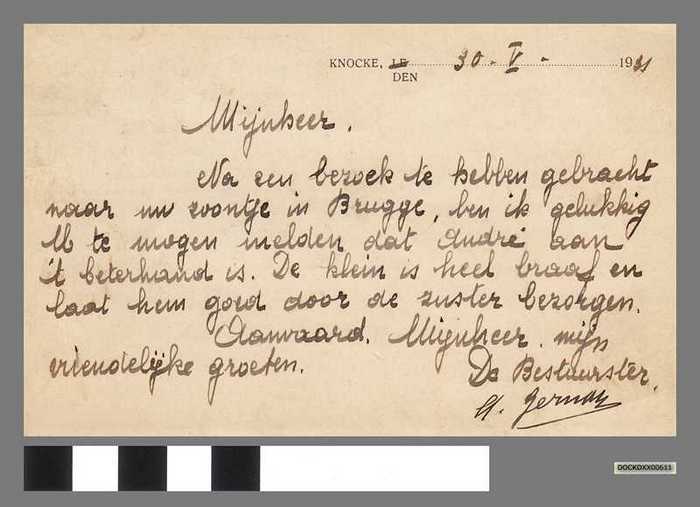 KNOCKE, LE 30 - V - 1931
DEN
Mijnheer.
Na een bezoek te hebben gebracht
naar uw zoontje in Brugge, ben ik gelukkig
U te mogen melden dat André aan
't beterhand is. De klein is heel braaf en
laat hem goed door de zuster bezorgen.
Aanvaard. Mijnheer. mijn
vriendelijke groeten.
De Bestuurster.
DOCKDXX00611